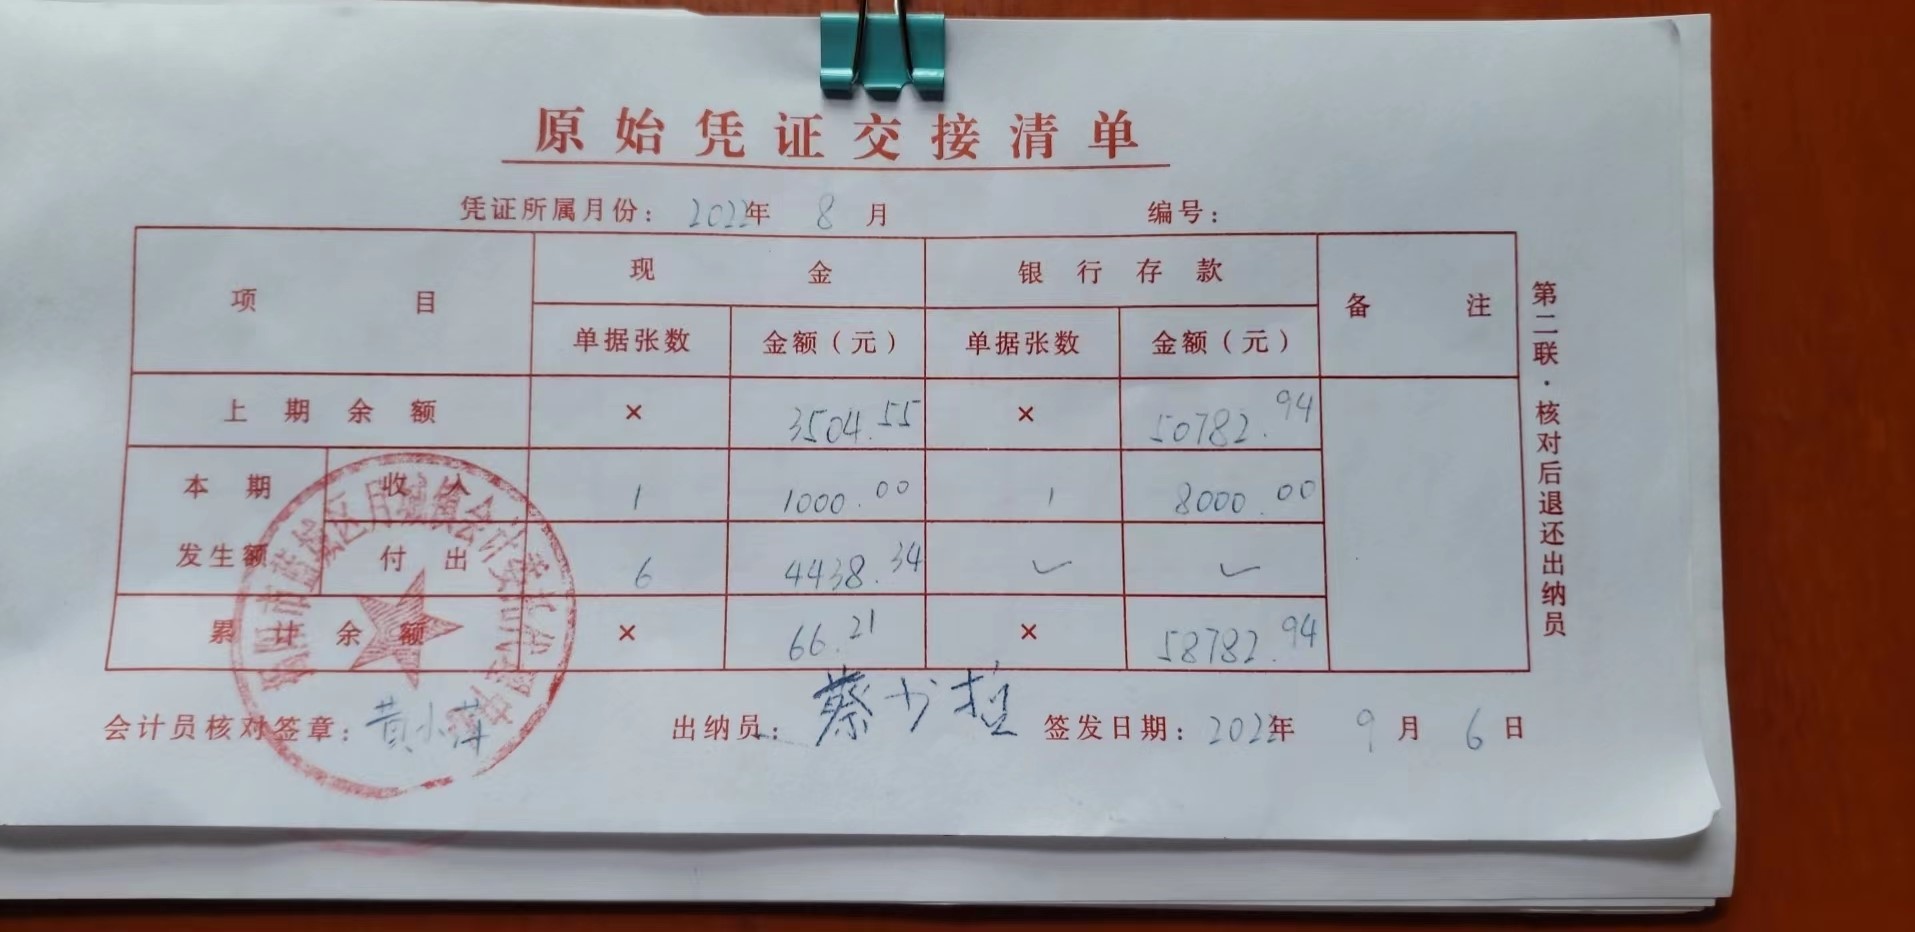 原始凭证交接清单
凭证所属月份： 2022年 8 月 编号：
项 目 现 金 银 行 存 款 备 注
单据张数 金额（元） 单据张数 金额（元）
上 期 余 额 × 3504.55 × 50782.94
本 期 收 入 1 1000.00 1 8000.00
发生额 付 出 6 4438.34
累 计 余 额 × 66.21 × 58782.94
会计员核对签章：黄小萍 出纳员： 签发日期：2022年 9 月 6 日
第二联·核对后退还出纳员